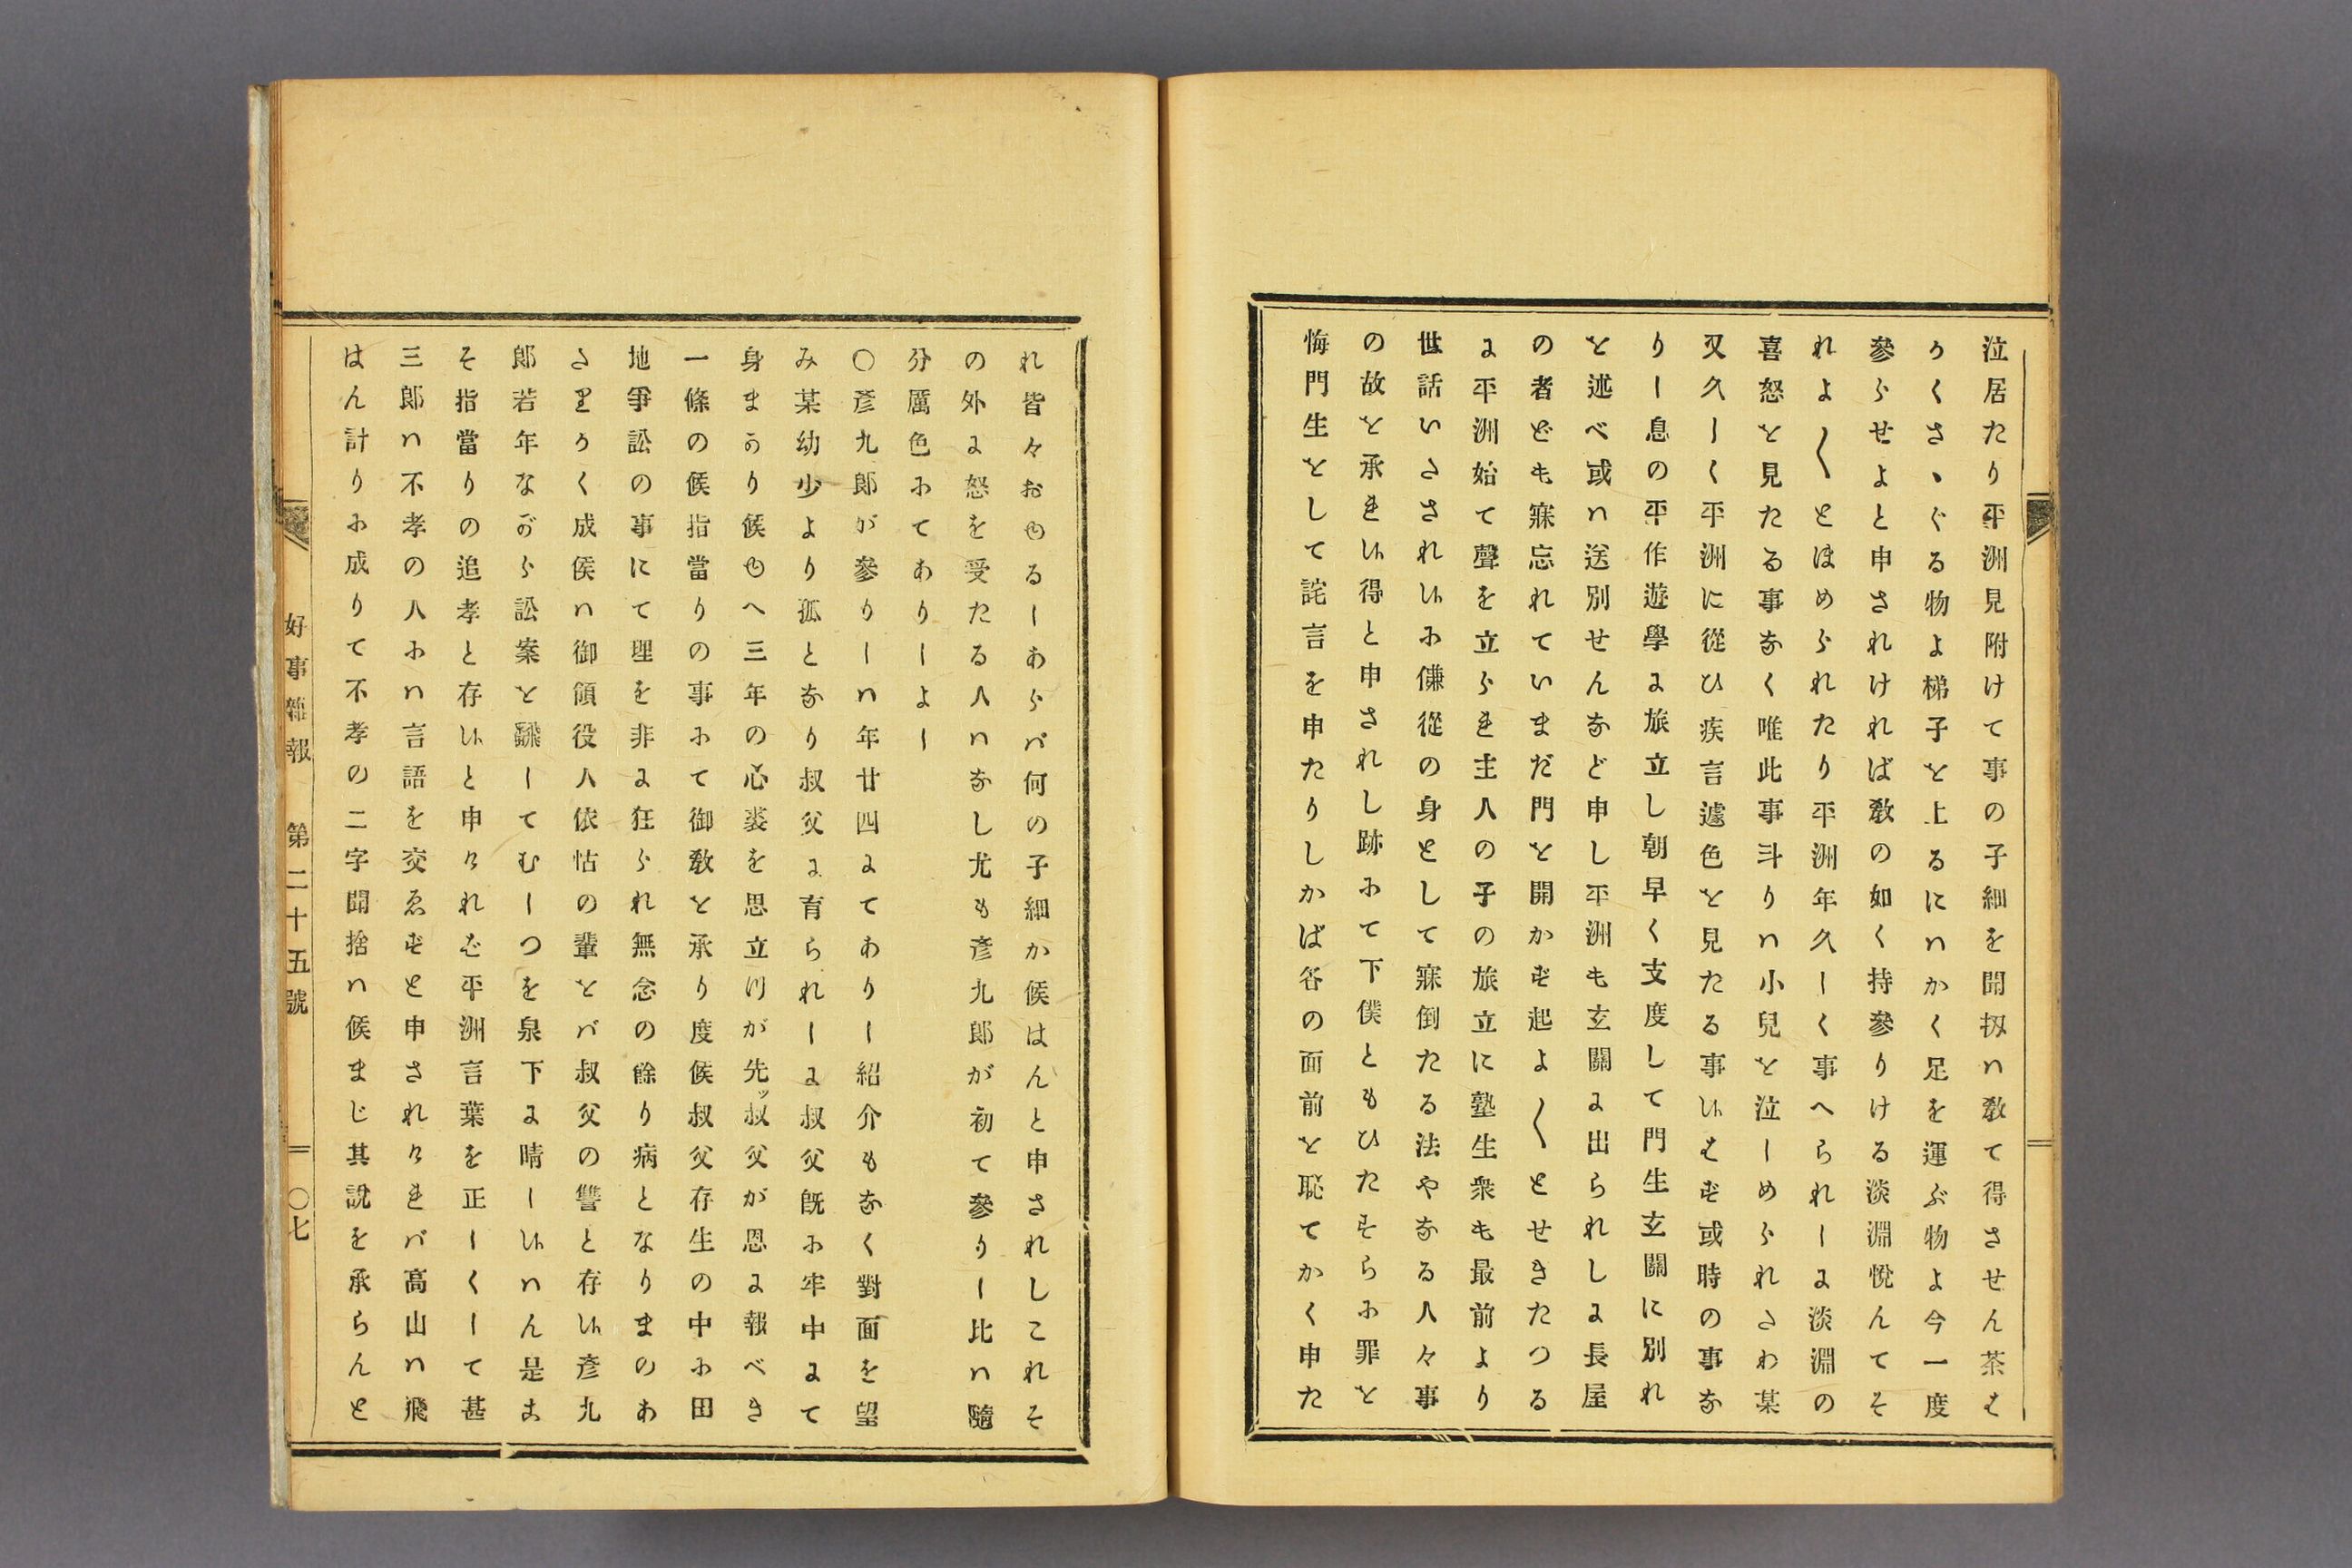 泣居たり平洲見附けて事の子細を聞扨ハ敎て得させん茶む
かくさゝぐる物よ梯子と上るにハかく足を運ぶ物よ今一度
參らせよと申されければ敎の如く持參りける淡淵悅んてそ
れよ〱とほめられたり平洲年久しく事へられしに淡淵の
喜怒を見たる事なく唯此事斗りハ小兒を泣しめられさわ某
又久しく平洲に從ひ疾言遽色を見たる事いはず或時の事な
りし息の平作遊學に旅立し朝早く支度して門生玄關に別れ
を述べ或ハ送別せんなど申し平洲も玄關に出られしに長屋
の者ども寐忘れていまだ門を開かず起よ〱とせきたつる
に平洲始て聲を立られ主人の子の旅立に塾生衆も最前より
世話いたされしに傔從の身として寐倒たる法やなる人々事
の故を承れハ得と申されし跡にて下僕ともひたすらに罪を
悔門生をして詫言を申たりしかば各の面前を恥てかく申た
れ皆々おもるしあらバ何の子細か候はんと申されしこれそ
の外に怒を受たる人ハなし尤も彥九郞が初て參りし比ハ隨
分厲色にてありしよし
〇彥九郞が參りしハ年廿四にてありし紹介もなく對面を望
み某幼少より孤となり叔父に育られしに叔父旣に牢中にて
身まかり候ゆへ三年の心裘を思立川が先ッ叔父が恩に報べき
一條の候指當りの事にて御敎を承り度候叔父存生の中に田
地爭訟の事にて理を非に狂られ無念の餘り病となりまのあ
たりかく成侯ハ御領役人依怙の輩をバ叔父の讐と存い彥九
郞若年ながら訟案を飜してむしつを泉下に晴しいハん是よ
そ指當りの追孝と存いと申ければ平洲言葉を正しくして甚
三郞ハ不孝の人にハ言語を交ゑずと申されけれバ高山ハ飛
はん計りに成りて不孝の二字聞捨ハ候まじ其說を承らんと
好事雜報　第二十五號　〇七